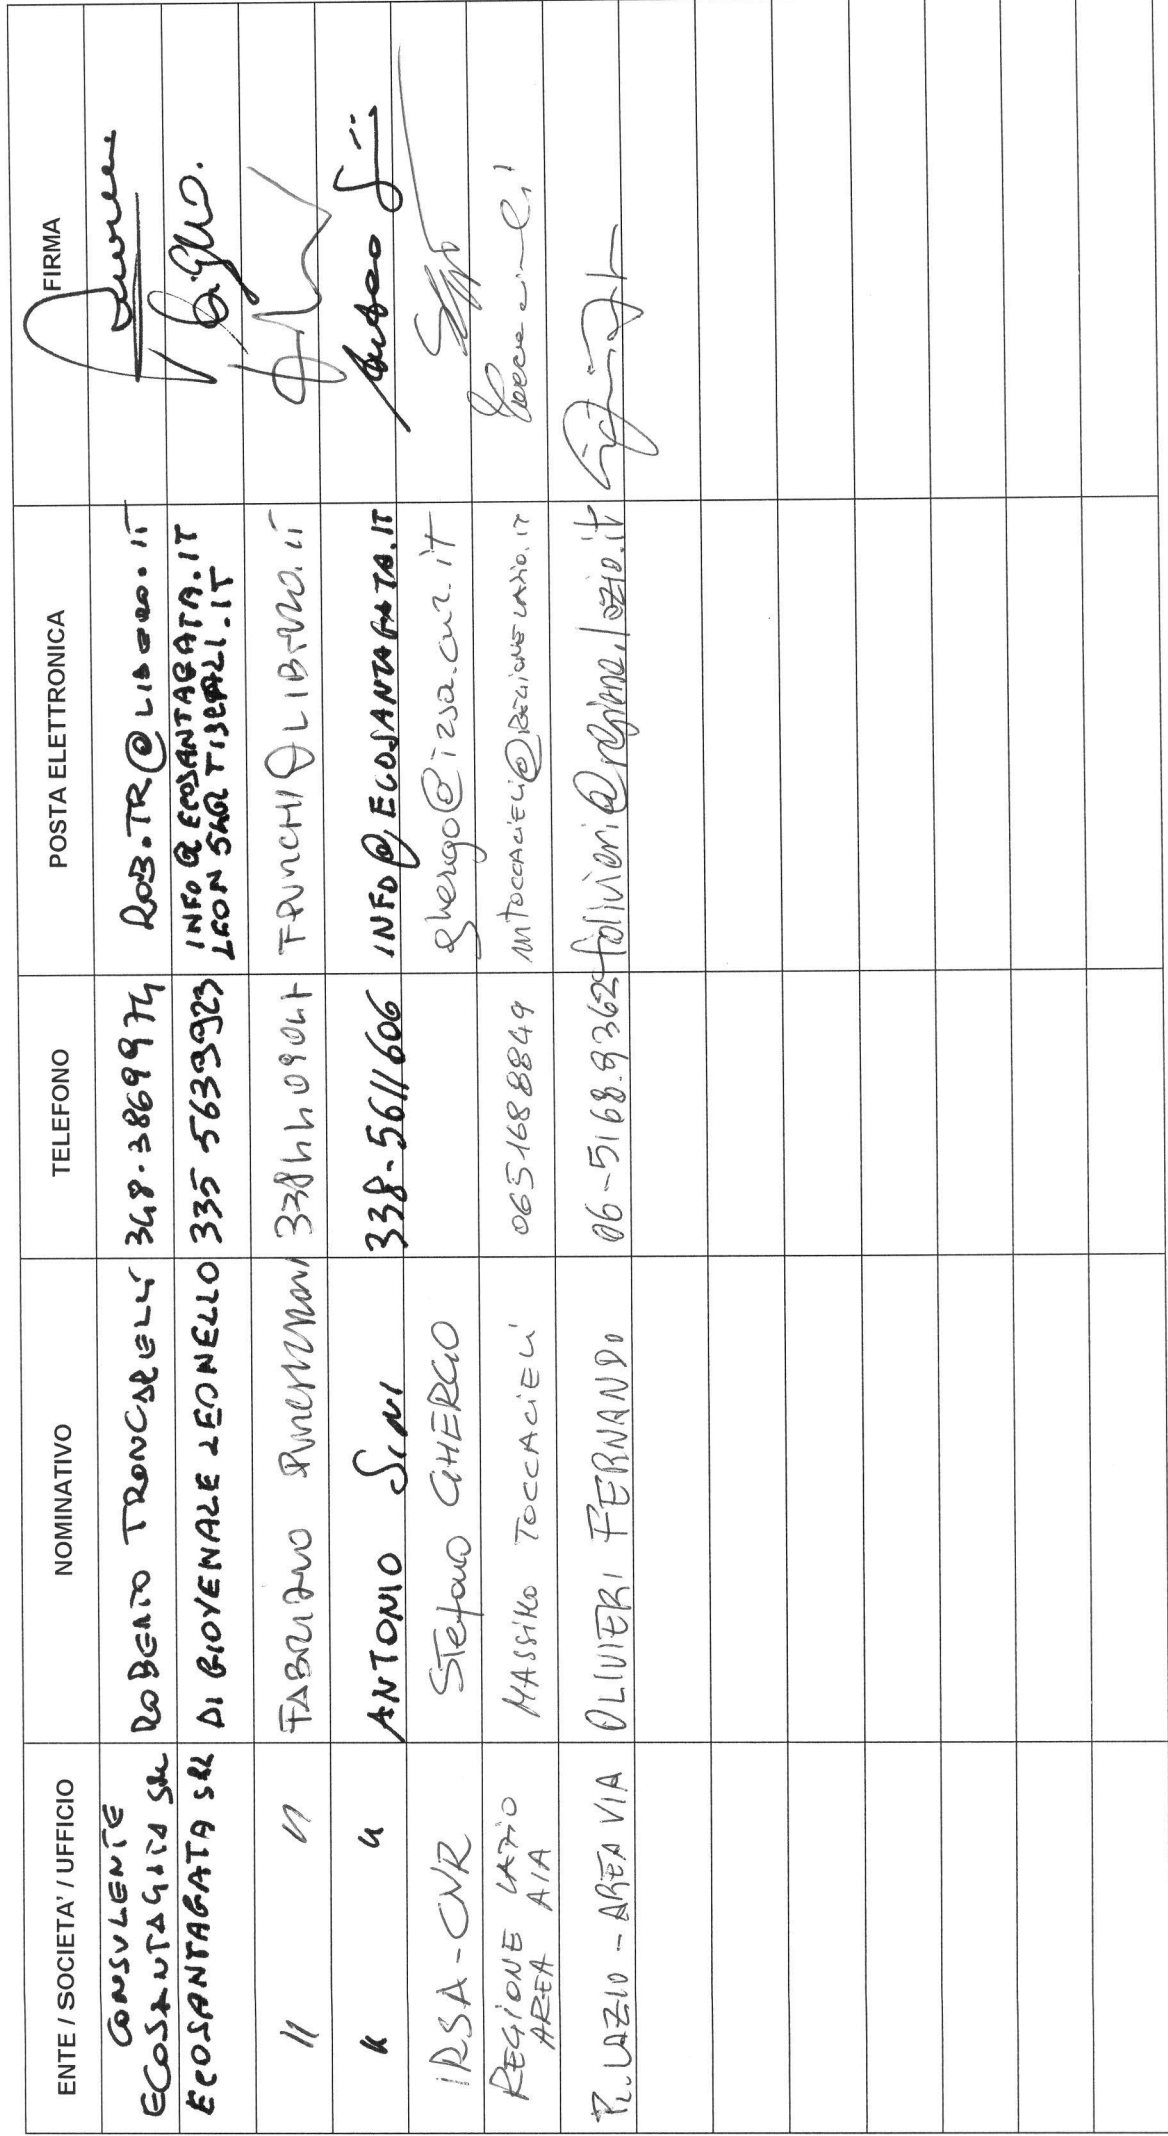 ENTE / SOCIETA' / UFFICIO NOMINATIVO TELEFONO POSTA ELETTRONICA FIRMA
CONSULENTE
ECOSANTAGATA SRL ROBERTO TRONCARELLI 348.3869974 ROB.TR@LIBERO.IT
ECOSANTAGATA SRL DI GIOVENALE LEONELLO 335 5639923 INFO@ECOSANTAGATA.IT
" " FABRIZIO
" " ANTONIO SINI 338-5611606 INFO@ECOSANTAGATA.IT
IRSA-CNR Stefano GHERGO ghergo@irsa.cnr.it
REGIONE LAZIO
AREA AIA MASSIMO TOCCACIELI 0651688849 mtoccacieli@REGIONE.LAZIO.IT
R. LAZIO - AREA VIA OLIVIERI FERNANDO 06-5168.9362 folivieri@regione.lazio.it